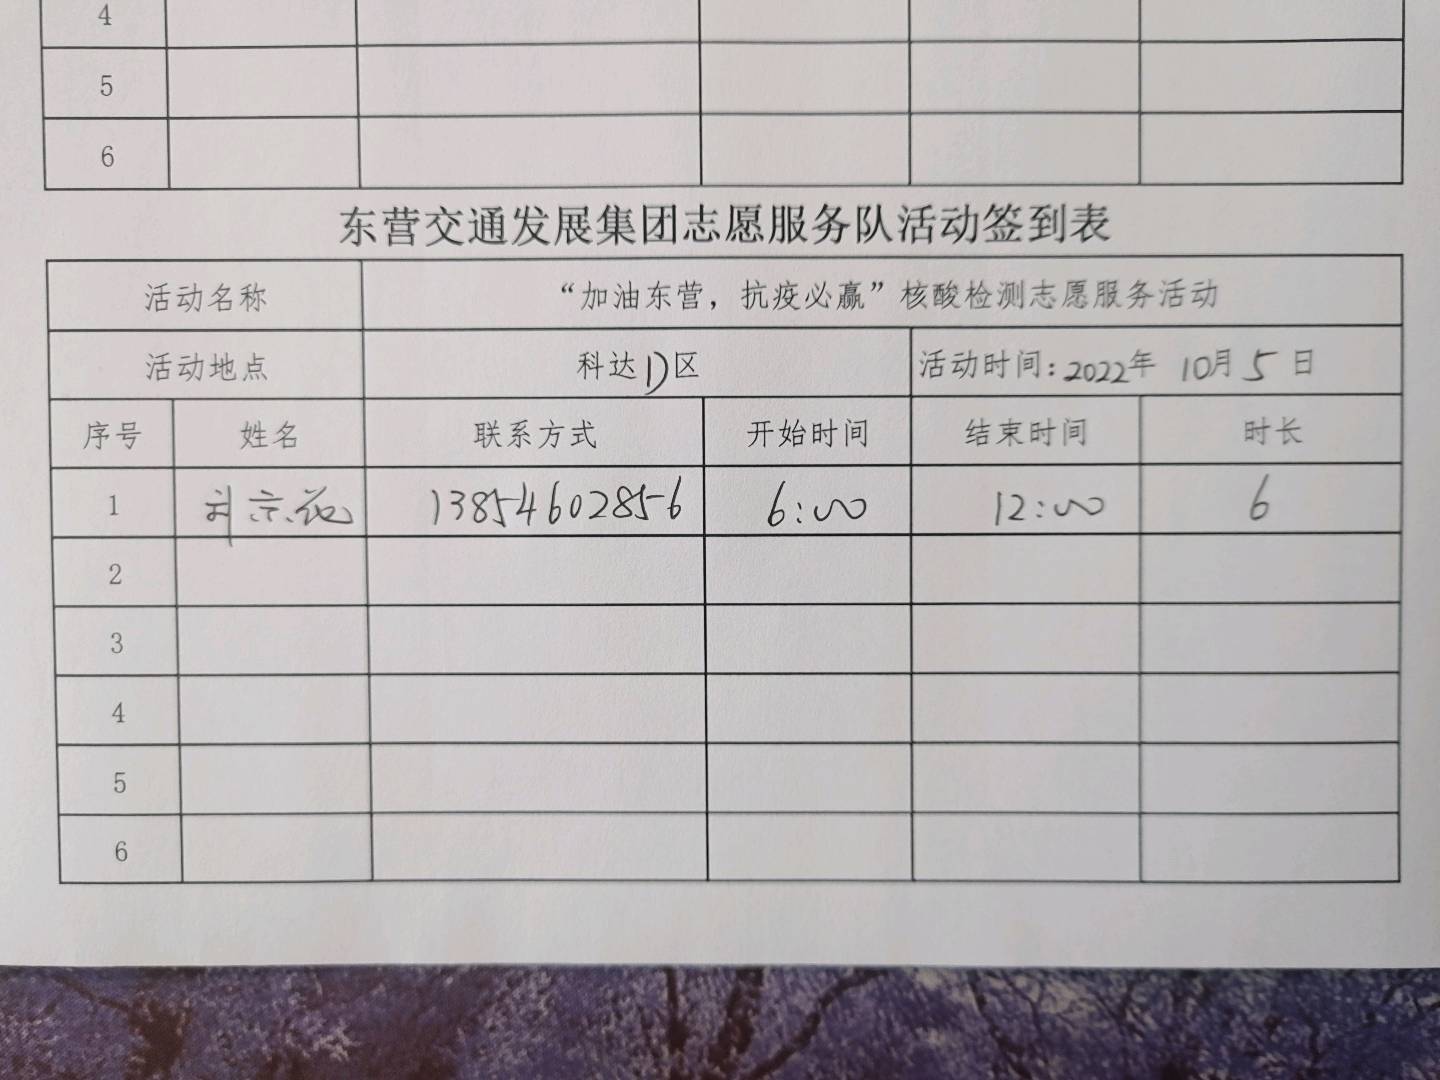 4
5
6
东营交通发展集团志愿服务队活动签到表
活动名称 “加油东营，抗疫必赢”核酸检测志愿服务活动
活动地点 科达D区 活动时间：2022年 10月 5 日
序号 姓名 联系方式 开始时间 结束时间 时长
1 刘京花 13854602856 6:00 12:00 6
2
3
4
5
6